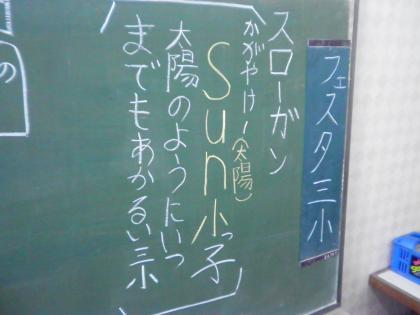 フェスタ三小
スローガン
かがやけ!(太陽)
Sun小っ子
太陽のようにいつ
までもあかるい三小
の